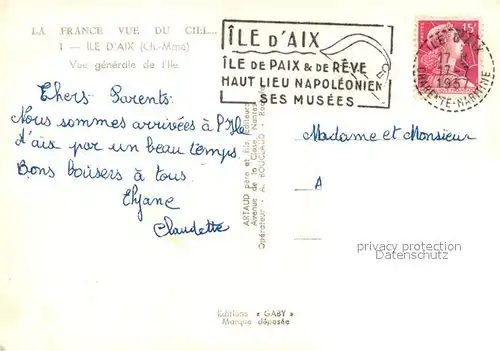 LA FRANCE VUE DU CIEL...
1 - ILE D'AIX (Ch.-Mme)
Vue générale de l'Ile
ÎLE D'AIX
ÎLE DE PAIX & DE RÊVE
HAUT LIEU NAPOLÉONIEN
SES MUSÉES
15F
ILE D'AIX
17
1957
CHARENTE-MARITIME
Chers Parents.
Nous sommes arrivées à l'Ile
d'aix par un beau temps.
Bons baisers à tous.
Elyane
Claudette
ARTAUD père et fils, Editeurs
Avenue de la Close, Nantes
Opérateur : A. BOUCLAUD
Madame et Monsieur
A
privacy protection
Editions « GABY »
Marque déposée